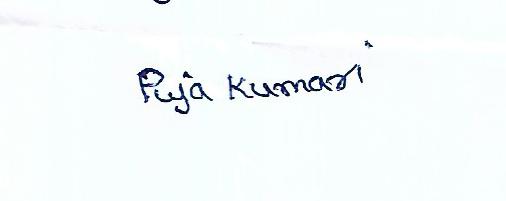 Puja Kumari